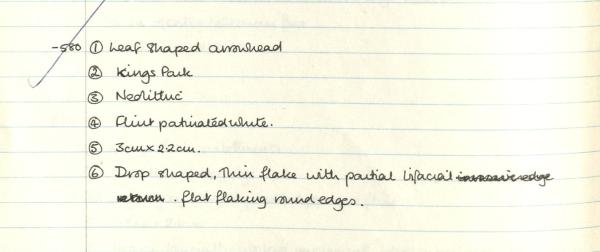 -580 ① Leaf shaped arrowhead
② Kings Park
③ Neolithic
④ Flint patinated white.
⑤ 3cm x 2.2cm.
⑥ Drop shaped, Thin flake with partial bifacial edge
. flat flaking round edges.